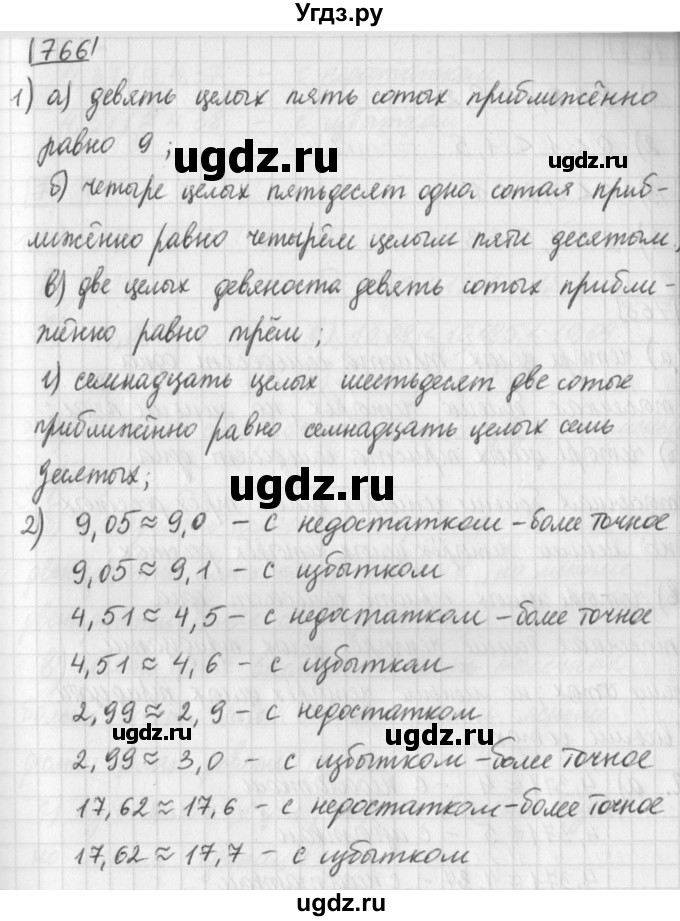 Угдз.ру
766
1) а) девять целых пять сотых приближённо
равно 9 ;
ugdz.ru
ugdz.ru
б) четыре целых пятьдесят одна сотая приб-
лижённо равно четырём целым пяти десятым,
в) две целых девяноста девять сотых прибли-
жённо равно трём ;
ugdz.ru
г) семнадцать целых шестьдесят две сотые
приближённо равно семнадцать целых семь
десятых;
ugdz.ru
2) 9,05 ≈ 9,0 – с недостатком – более точное
9,05 ≈ 9,1 – с избытком
4,51 ≈ 4,5 – с недостатком – более точное
4,51 ≈ 4,6 – с избытком
2,99 ≈ 2,9 – с недостатком
ugdz.ru
ugdz.ru
2,99 ≈ 3,0 – с избытком – более точное
17,62 ≈ 17,6 – с недостатком – более точное
17,62 ≈ 17,7 – с избытком
ugdz.ru